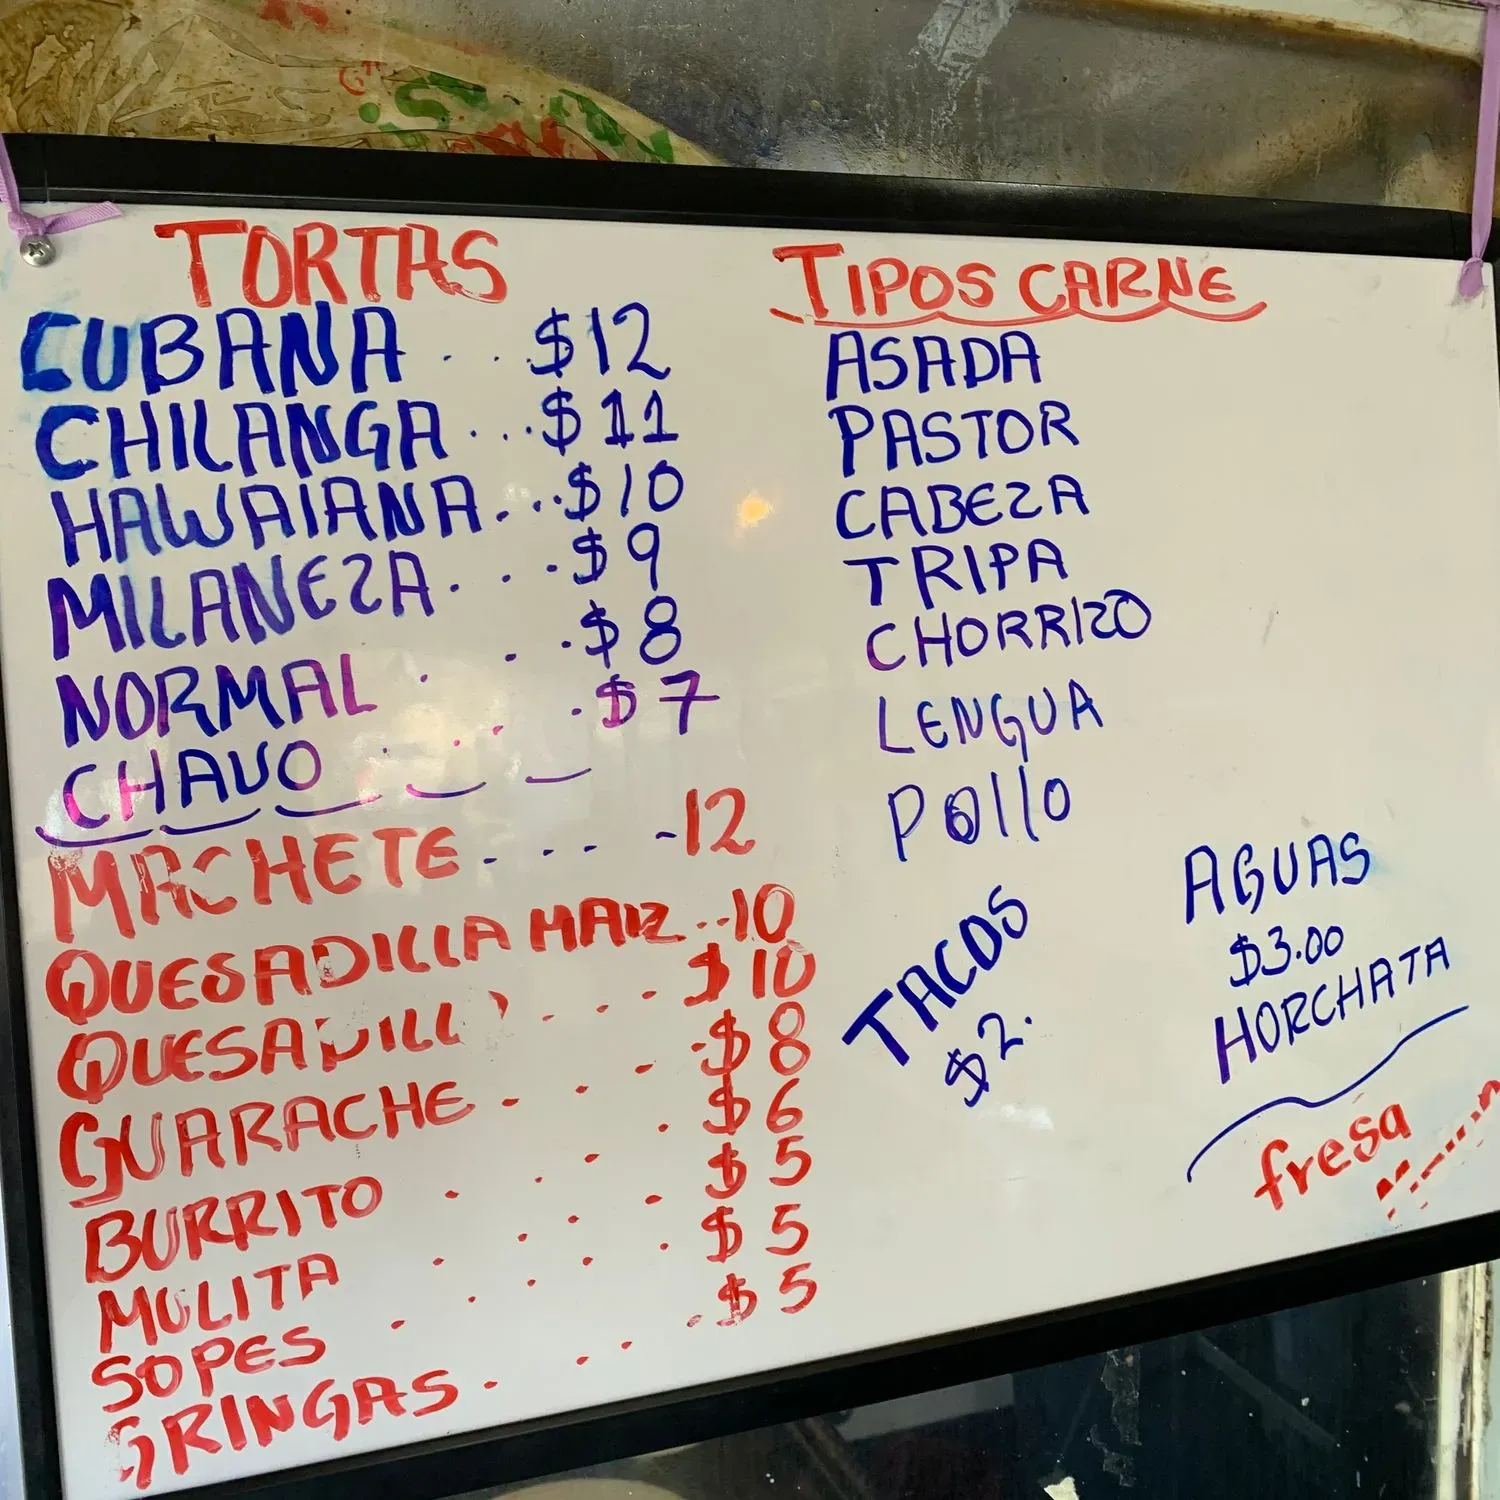 TORTAS
CUBANA . . . $12
CHILANGA . . . $11
HAWAIANA . . . $10
MILANEZA . . . . $9
NORMAL . . . . $8
CHAVO . . . . $7
MACHETE . . . -12
QUESADILLA MAIZ . . . 10
QUESADILL . . . . $10
GUARACHE . . . . $8
BURRITO . . . . $6
MULITA . . . . $5
SOPES . . . . $5
GRINGAS . . . . $5
TIPOS CARNE
ASADA
PASTOR
CABEZA
TRIPA
CHORRIZO
LENGUA
Pollo
TACOS
$2.
AGUAS
$3.00
HORCHATA
fresa